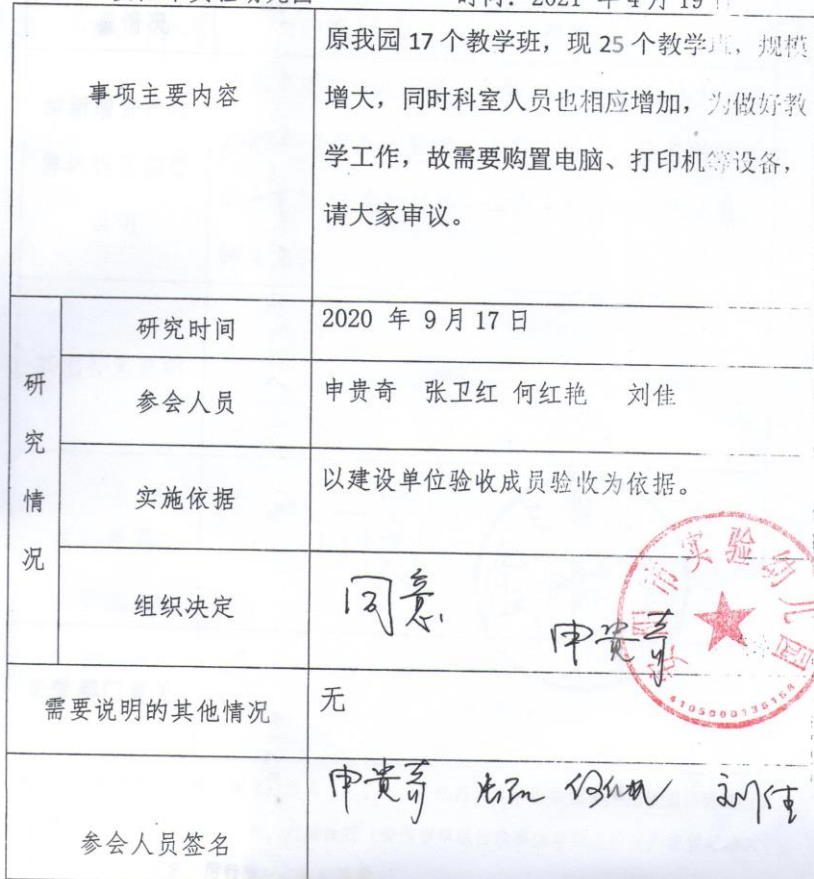 时间：2021 年 4 月 19 日
事项主要内容
原我园 17 个教学班，现 25 个教学班，规模
增大，同时科室人员也相应增加，为做好教
学工作，故需要购置电脑、打印机等设备，
请大家审议。
研究情况
研究时间
2020 年 9 月 17 日
参会人员
申贵奇 张卫红 何红艳 刘佳
实施依据
以建设单位验收成员验收为依据。
组织决定
同意
申贵奇
市实验幼儿园
需要说明的其他情况
无
参会人员签名
申贵奇 刘佳